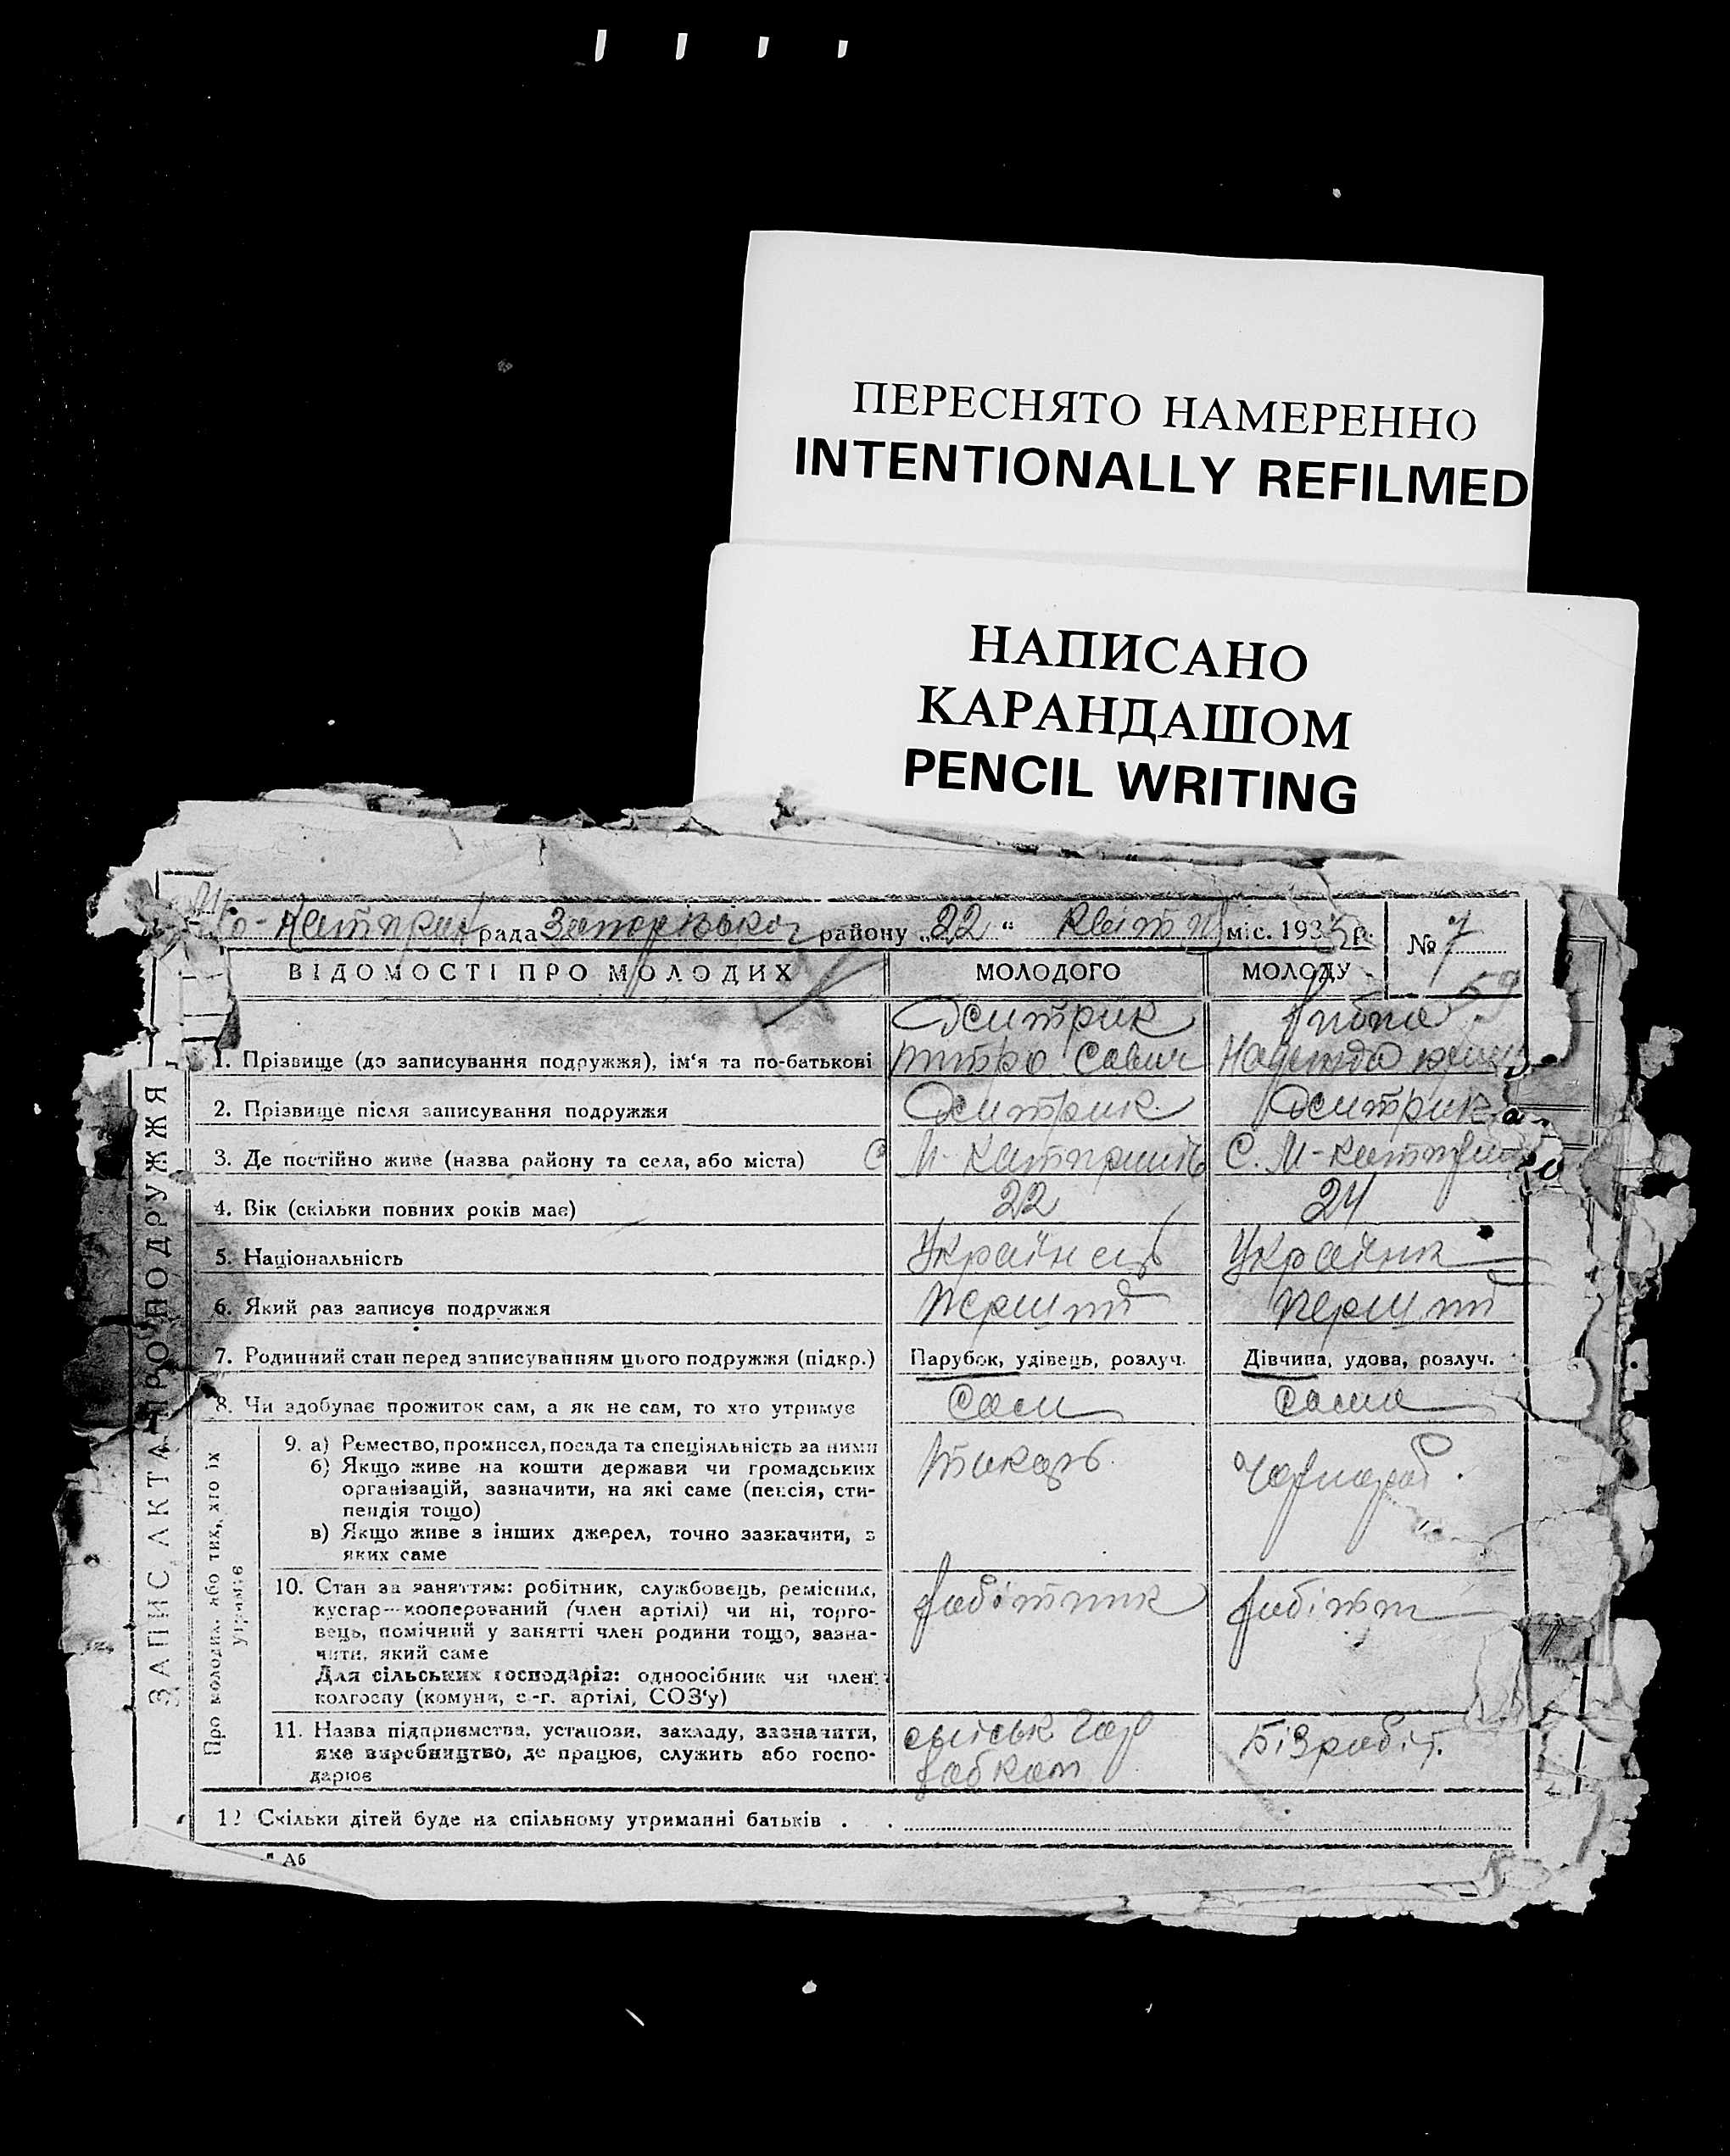 ПЕРЕСНЯТО НАМЕРЕННО
INTENTIONALLY REFILMED
НАПИСАНО
КАРАНДАШОМ
PENCIL WRITING
рада района „22“ міс. 193 р. № 7
59
ВІДОМОСТІ ПРО МОЛОДИХ МОЛОДОГО МОЛОДУ
ЗАПИС АКТА ПРО ПОДРУЖЖЯ
1. Прізвище (до записування подружжя), ім‘я та по-батькові Савич
2. Прізвище після записування подружжя
3. Де постійно живе (назва району та села, або міста) С. М-
4. Вік (скільки повних років має) 22 24
5. Національність Українець Українк
6. Який раз записує подружжя перший перший
7. Родинний стан перед записуванням цього подружжя (підкр.) Парубок, удівець, розлуч. Дівчина, удова, розлуч.
8. Чи здобуває прожиток сам, а як не сам, то хто утримує Сам Сама
Про молодих, або тих, хто їх
утримує
9. а) Ремество, промисел, посада та спеціяльність за ними
б) Якщо живе на кошти держави чи громадських
організацій, зазначити, на які саме (пенсія, сти-
пендія тощо)
в) Якщо живе з інших джерел, точно зазначити, з
яких саме
10. Стан за заняттям: робітник, службовець, ремісник, робітник
кустар—кооперований (член артілі) чи ні, торго-
вець, помічний у занятті член родини тощо, зазна-
чити, який саме
Для сільських господарів: одноосібник чи член
колгоспу (комуни, с.-г. артілі, СОЗ‘у)
11. Назва підприємства, установи, закладу, зазначити,
яке виробництво, де працює, служить або госпо-
дарює
12 Скільки дітей буде на спільному утриманні батьків